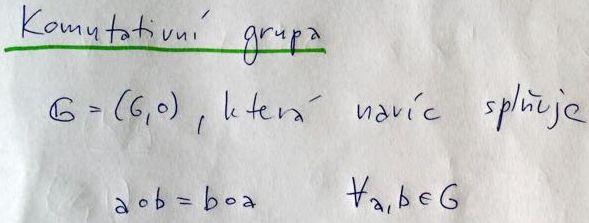 Komutativní grupa
G = (G,∘), která navíc splňuje
a∘b = b∘a ∀a,b∈G